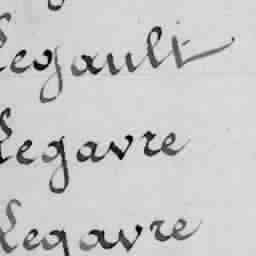 Legault
Legavre
Legavre